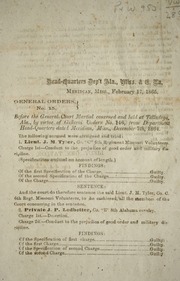 Head-Quarters Dep't Ala., Miss. & E. La.
Meridian, Miss., February 11, 1865.
GENERAL ORDERS,
No. 15.
Before the General Court Martial convened and held at Talladega,
Ala., by virtue of General Orders No. 146, from Department
Head-Quarters dated Meridian, Miss., December 7th, 1864.
The following accused were arraigned and tried:
1. Lieut. J. M. Tyler, Co. 6th Regiment Missouri Volunteers.
Charge 1st—Conduct to the prejudice of good order and Military
(Specifications omitted on account of length.)
FINDINGS:
Of the first Specification of the Charge, Guilty
Of the second Specification of the Charge, Guilty
Of the Charge, Guilty
SENTENCE:
And the court do therefore sentence the said Lieut. J. M. Tyler, Co.
6th Reg. Missouri Volunteers, to be cashiered, all the members of the
Court concurring in the
2. Private J. P. Ledbetter, Co. 5th Alabama
Charge 1st—Desertion.
Charge 2d—Conduct to the prejudice of good order and Military
FINDINGS:
Of the Specification of first charge, Guilty
Of the first charge, Guilty
Of the Specification of second Charge, Guilty
Of the second Charge, Guilty